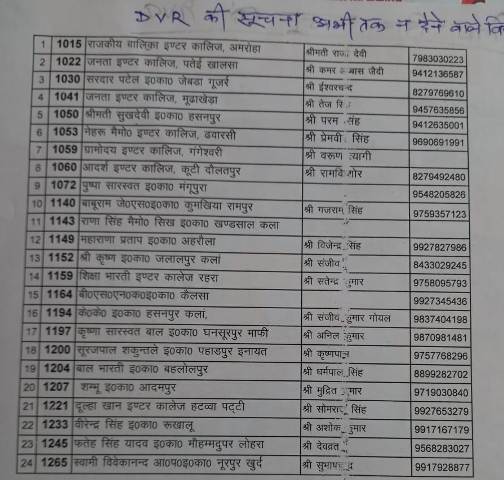 DVR की सूचना अभी तक न देने वाले वि
1 1015 राजकीय बालिका इण्टर कालिज, अमरोहा श्रीमती राज देवी 7983030223
2 1022 जनता इण्टर कालिज, पतेई खालसा श्री कमर अब्बास जैदी 9412136587
3 1030 सरदार पटेल इ०का० जेबडा गूजर श्री ईश्वरचन्द 8279769610
4 1041 जनता इण्टर कालिज, मूढाखेड़ा श्री तेज सिंह 9457635856
5 1050 श्रीमती सुखदेवी इ०का० हसनपुर श्री परम सिंह 9412635001
6 1053 नेहरू मैमो० इण्टर कालिज, ढवारसी श्री प्रेमवीर सिंह 9690691991
7 1059 ग्रामोदय इण्टर कालिज, गंगेश्वरी श्री वरूण त्यागी
8 1060 आदर्श इण्टर कालिज, कूटी दौलतपुर श्री रामकिशोर 8279492480
9 1072 पुष्पा सारस्वत इ०का० मंगूपुरा 9548205826
10 1140 बाबूराम जे०एस०इ०का० कुमखिया रामपुर श्री गजराम सिंह 9759357123
11 1143 राणा सिंह मैमो० सिख इ०का० खण्डसाल कला
12 1149 महाराणा प्रताप इ०का० अहरौला श्री विजेन्द्र सिंह 9927827986
13 1152 श्री कृष्ण इ०का० जलालपुर कलां श्री संजीव 8433029245
14 1159 शिक्षा भारती इण्टर कालेज रहरा श्री सतेन्द्र कुमार 9758095793
15 1164 बी०एस०एन०क०इ०का० कैलसा 9927345436
16 1194 के०के० इ०का० हसनपुर कला, श्री संजीव कुमार गोयल 9837404198
17 1197 कृष्णा सारस्वत बाल इ०का० घनसूरपुर माफी श्री अनिल कुमार 9870981481
18 1200 सूरजपाल शकुन्तले इ०का० पहाडपुर इनायत श्री कृष्णपाल 9757768296
19 1204 बाल भारती इ०का० बहलोलपुर श्री धर्मपाल सिंह 8899282702
20 1207 शम्भू इ०का० आदमपुर श्री मुदित कुमार 9719030840
21 1221 दूल्हा खान इण्टर कालेज हटव्वा पट्टी श्री सोमराज सिंह 9927653279
22 1233 वीरेन्द्र सिंह इ०का० रूखालू श्री अशोक कुमार 9917167179
23 1245 फतेह सिंह यादव इ०का० मौहम्मदपुर लोहरा श्री देवव्रत 9568283027
24 1265 स्वामी विवेकानन्द आ०प०इ०का० नूरपुर खुर्द श्री सुभाषचन्द्र 9917928877